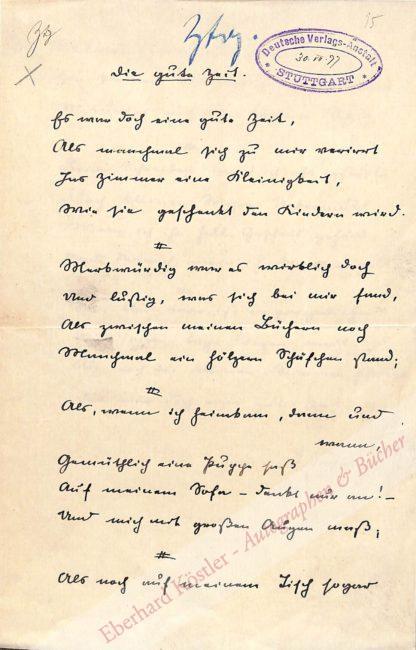 15
Deutsche Verlags-Anstalt
30.
97
STUTTGART
Die gute Zeit.
Es war doch eine gute Zeit,
Als manchmal sich zu mir verirrt
Ins Zimmer eine Kleinigkeit,
Wie sie geschenkt den Kindern wird.
#
Merkwürdig war es wirklich doch
Und lustig, was sich bei mir fand,
Als zwischen meinen Büchern noch
Manchmal ein hölzern Schäfchen stand;
#
Als, wenn ich heimkam, dann und
wann,
Gemüthlich eine Puppe saß
Auf meinem Sofa – denkt nur an! –
Und mich mit großen Augen maß;
#
Als noch auf meinem Tisch sogar
Eberhard Köstler - Autographen & Bücher